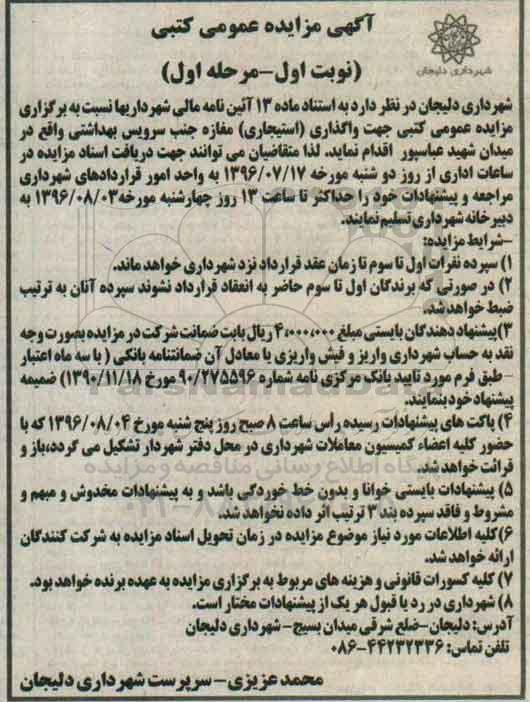 آگهی مزایده عمومی کتبی
(نوبت اول-مرحله اول)
شهرداری دلیجان
شهرداری دلیجان در نظر دارد به استناد ماده ۱۳ آئین نامه مالی شهرداریها نسبت به برگزاری
مزایده عمومی کتبی جهت واگذاری (استیجاری) مغازه جنب سرویس بهداشتی واقع در
میدان شهید عباسپور اقدام نماید. لذا متقاضیان می توانند جهت دریافت اسناد مزایده در
ساعات اداری از روز دو شنبه مورخه ۱۳۹۶/۰۷/۱۷ به واحد امور قراردادهای شهرداری
مراجعه و پیشنهادات خود را حداکثر تا ساعت ۱۳ روز چهارشنبه مورخه ۱۳۹۶/۰۸/۰۳ به
دبیرخانه شهرداری تسلیم نمایند.
-شرایط مزایده:
۱) سپرده نفرات اول تا سوم تا زمان عقد قرارداد نزد شهرداری خواهد ماند.
۲) در صورتی که برندگان اول تا سوم حاضر به انعقاد قرارداد نشوند سپرده آنان به ترتیب
ضبط خواهد شد.
۳)پیشنهاد دهندگان بایستی مبلغ ۴،۰۰۰،۰۰۰ ریال بابت ضمانت شرکت در مزایده بصورت وجه
نقد به حساب شهرداری واریز و فیش واریزی یا معادل آن ضمانتنامه بانکی ( با سه ماه اعتبار
-طبق فرم مورد تایید بانک مرکزی نامه شماره ۹۰/۲۷۵۵۹۶ مورخ ۱۳۹۰/۱۱/۱۸) ضمیمه
پیشنهاد خود بنمایند.
۴) پاکت های پیشنهادات رسیده رأس ساعت ۸ صبح روز پنج شنبه مورخ ۱۳۹۶/۰۸/۰۴ که با
حضور کلیه اعضاء کمیسیون معاملات شهرداری در محل دفتر شهردار تشکیل می گردد،باز و
قرائت خواهد شد.
۵) پیشنهادات بایستی خوانا و بدون خط خوردگی باشد و به پیشنهادات مخدوش و مبهم و
مشروط و فاقد سپرده بند ۳ ترتیب اثر داده نخواهد شد.
۶)کلیه اطلاعات مورد نیاز موضوع مزایده در زمان تحویل اسناد مزایده به شرکت کنندگان
ارائه خواهد شد.
۷) کلیه کسورات قانونی و هزینه های مربوط به برگزاری مزایده به عهده برنده خواهد بود.
۸) شهرداری در رد یا قبول هر یک از پیشنهادات مختار است.
آدرس: دلیجان-ضلع شرقی میدان بسیج- شهرداری دلیجان
تلفن تماس: ۴۴۲۳۲۳۳۶-۰۸۶
محمد عزیزی- سرپرست شهرداری دلیجان